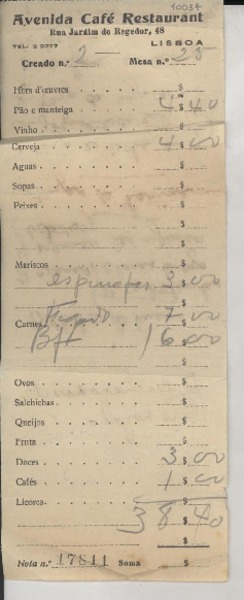 10034
Avenida Café Restaurant
Rua Jardim do Regedor, 48
LISBOA
Creado n.º 2 Mesa n.º 25
Hors d'œuvres $
Pão e manteiga 4 $ 40
Vinho $
Cerveja 4 $ 00
Aguas $
Sopas $
Peixes $
$
$
Mariscos $
3 $ 00
7 $ 00
Carnes
Bft 16 $ 00
$
Ovos $
Salchichas $
Queijos $
Fruta $
Doces 3 $ 00
Cafés 1 $ 00
Licores $
38 $ 40
Nota n.º 17811 Soma $